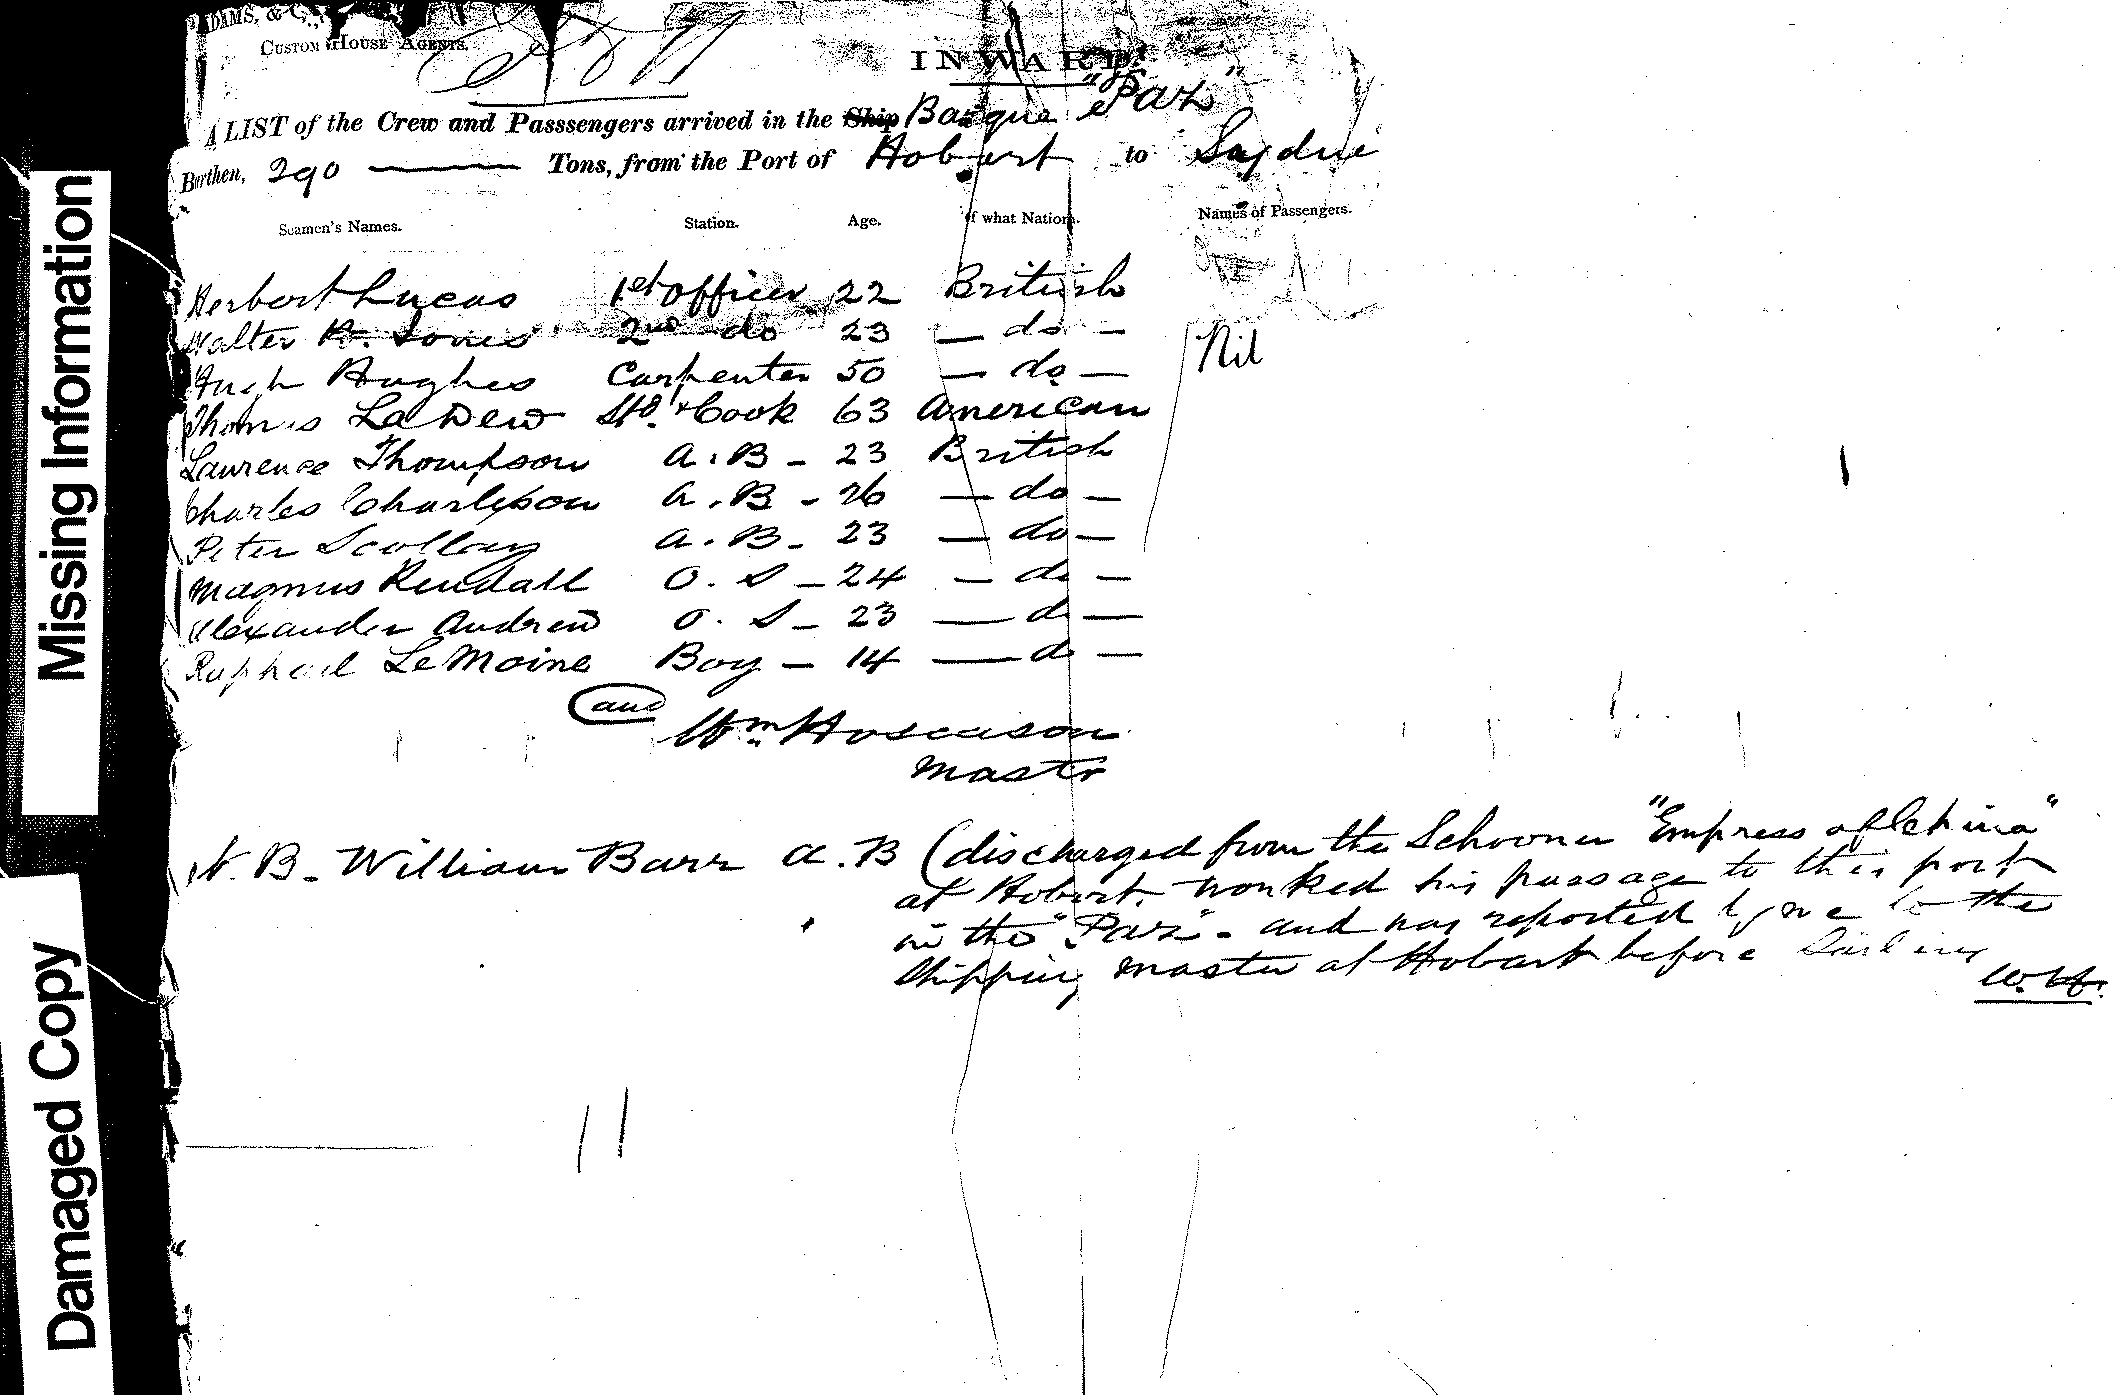 ADAMS, & C
CUSTOM HOUSE AGENTS.
INWARD.
A LIST of the Crew and Passsengers arrived in the Ship Barque "Paz"
Burthen, 290 Tons, from the Port of Hobart to Sydney
Seamen's Names. Station. Age. Of what Nation. Names of Passengers.
Herbert Lucas 1st Officer 22 British
Walter R. Jones 2nd do 23 — do —
Nil
Hugh Hughes Carpenter 50 — do —
Thomas LaDew Std. & Cook 63 American
Laurence Thompson A. B - 23 British
Charles Charleson A. B - 26 — do —
Peter Scollay A. B - 23 — do —
Magnus Rendall O. S - 24 — do —
Alexander Andrew O. S - 23 — do —
Raphael LeMoine Boy - 14 — do —
and
Wm. Hoseason
Mastr
N. B. William Barr A. B (discharged from the Schooner "Empress of China"
at Hobart, worked his passage to this port
in the "Paz" - and was reported by me to the
Shipping Master at Hobart before Sailing
W. H.
Missing Information
Damaged Copy